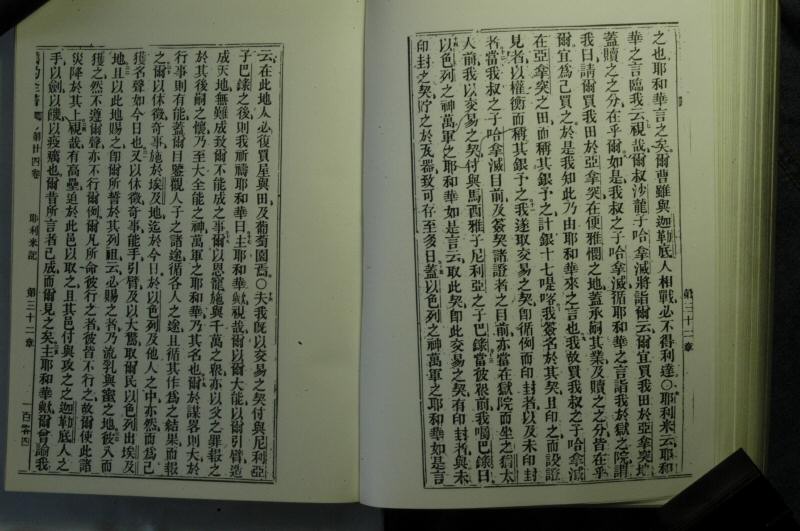 之也耶和華言之矣爾曹雖與迦勒底人相戰必不得利達〇耶利米云耶和
華之言臨我云視哉爾叔沙龍子哈拿滅將詣爾云爾宜買我田於亞拿突
蓋贖之之分在乎爾如是我叔之子哈拿滅循耶和華之言詣我於獄之院謂
我曰請爾買我田於亞拿突在便雅憫之地蓋承嗣其業及贖之之分皆在乎
爾宜為己買之於是我知此乃由耶和華來之言也我故買我叔之子哈拿滅
在亞拿突之田而稱其銀予之計銀十七是客我簽名於其契且印之而設證
見者以權衡而稱其銀予之我遂取交易之契即循例而印封者以及未印封
者當我叔之子哈拿滅目前及簽契諸證者之目前亦當在獄院而坐之猶太
人前我以交易之契付與馬西雅子尼利亞之子巴錄當彼輩前我囑巴錄曰
以色列之神萬軍之耶和華如是言云取此契即此交易之契有印封者與未
印封之契貯之於瓦器致可存至多日蓋以色列之神萬軍之耶和華如是言
第三十二章
云在此地人必復買屋與田及葡萄園焉〇夫我既以交易之契付與尼利亞
子巴錄之後則我祈禱耶和華曰主耶和華歟視哉爾以爾大能以爾引臂造
成天地無難成致爾不能成之事爾以恩寵施與千萬之輩亦以父之罪報之
於其後嗣之懷乃至大全能之神萬軍之耶和華乃其名也爾於謀畧則大於
行事則有能蓋爾目鑒觀人子之諸途循各人之途且循其作為之結果而報
之爾以休徵奇事施於埃及地迄於今日於以色列及他人之中亦然而為己
獲名聲如今日也又以休徵奇事能手引臂及以大驚取爾民以色列出埃及
地且以此地賜之即爾所誓於其列祖云必賜之者乃流乳與蜜之地彼入而
獲之然不遵爾聲亦不行爾例爾凡所命彼行之者彼皆不行之故爾使此諸
災降於其上視哉有高壘迫於此邑以取之且其邑付與攻之之迦勒底人之
手以劍以饑以疫癘也爾昔所言者已成而爾見之矣主耶和華歟爾曾諭我
第廿四卷 耶利米記 第三十二章 一百零四